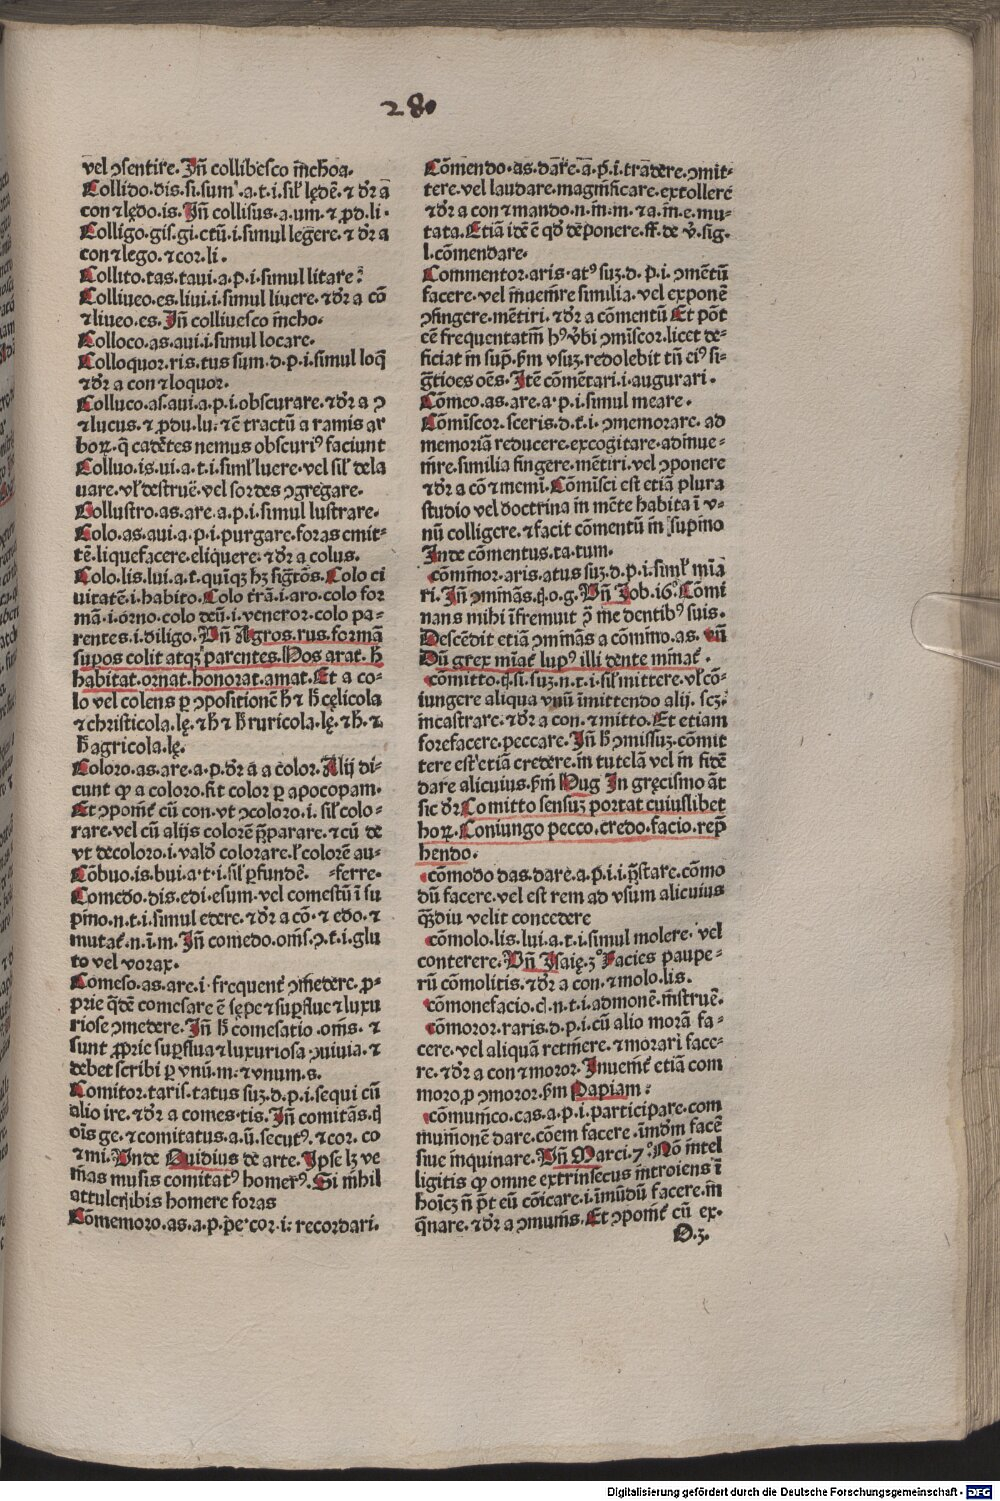 28.
vel ↄsentire. Jn̄ collibesco īchoa.
Collido.dis.si.sum'.a.t.i.sil' lędē.⁊ dr̄ a
con ⁊ lędo.is. Jn̄ collisus.a.um.⁊ ꝓd.li.
Colligo.gis.gi.ctū.i.simul legere.⁊ dr̄ a
con ⁊ lego.⁊ cor.li.
Collito.tas.taui.a.p.i.simul litare.
Colliueo.es.liui.i.simul liuere.⁊ dr̄ a cō
⁊ liueo.es. Jn̄ colliuesco īcho.
Colloco.as.aui.i.simul locare.
Colloquor.ris.tus sum.d.p.i.simul loq̄
⁊ dr̄ a con ⁊ loquor.
Colluco.as.aui.a.p.i.obscurare.⁊ dr̄ a ↄ
⁊ lucus.⁊ ꝓdu.lu.⁊ ē tractū a ramis ar
boꝝ.q̄ cadētes nemus obscuriꝰ faciunt
Colluo.is.ui.a.t.i.siml' luere.vel sil' dela
uare.vl' destruē.vel sordes ↄgregare.
Collustro.as.are.a.p.i.simul lustrare.
Colo.as.aui.a.p.i.purgare.foras emit-
tē.liquefacere.eliquere.⁊ dr̄ a colus.
Colo.lis.lui.a.t.quīqꝫ hꝫ sigr̄tōs. Colo ci
uitatē.i.habito. Colo tr̄ā.i.aro.colo for
mā.i.orno.colo deū.i.veneror.colo pa-
rentes.i.diligo. Vn̄ Agros.rus.formā
supos colit atqꝫ parentes. Hos arat.h̄
habitat.ornat.honorat.amat. Et a co-
lo vel colens ꝑ ↄpositionē h̄ ⁊ h̄ cęlicola
⁊ christicola.lę.⁊ h̄ ⁊ h̄ ruricola.lę.⁊ h̄.⁊.
h̄ agricola.lę.
Coloro.as.are.a.p.dr̄ a a color. Alij di-
cunt ꝙ a coloro.fit color ꝑ apocopam.
Et ↄpoīt' cū con.vt ↄcoloro.i.sil' colo-
rare.vel cū alijs colorē p̄parare.⁊ cū de
vt decoloro.i.valō colorare.l' colorē au-
Cōbuo.is.bui.a.t.i.sil' ꝑfundē. -ferre.
Comedo.dis.edi.esum.vel comestū ī su
pīno.n.t.i.simul edere.⁊ dr̄ a cō.⁊ edo.⁊
mutat'.n.ī.m. Jn̄ comedo.oīs.ↄ.t.i.glu
to vel vorax.
Comeso.as.are.i.frequent' ↄmedere.ꝓ-
prie q̄dē comesare ē sępe ⁊ suꝑflue ⁊ luxu
riose ↄmedere. Jn̄ h̄ comesatio.oīs.⁊
sunt ꝓprie suꝑflua ⁊ luxuriosa ↄuiuia.⁊
debet scribi ꝑ vnū.m.⁊ vnum.s.
Comitor.taris.tatus suꝫ.d.p.i.sequi cū
alio ire.⁊ dr̄ a comes.tis. Jn̄ comitās.q̄
oīs ge.⁊ comitatus.a.ū.secutꝰ.⁊ cor.co
⁊ mi. Vnde Ouidius de arte. Jpse lꝫ ve
nias musis comitatꝰ homerꝰ. Si nihil
attuleribis homere foras
Cōmemoro.as.a.p.pe.cor.i.recordari.
Cōmendo.as.dare.a.p.i.tradere.ↄmit-
tere.vel laudare.magnificare.extollere
⁊ dr̄ a con ⁊ mando.n.in.m.⁊ a.in.e.mu-
tata. Etiā idē ē qd̄ dēponere.ff.de v̄.sig.
l.cōmendare.
Commentor.aris.atꝰ suꝫ.d.p.i.ↄmētū
facere.vel inuenire similia.vel exponē
ↄfingere.mētiri.⁊ dr̄ a cōmentū Et pōt
eē frequentatīū hꝰ v̄bi ↄmīscor.licet de-
ficiat in sup̄.ẞm vsuꝫ.redolebit tn̄ eiꝰ si-
gr̄tioēs oēs. Jtē cōmētari.i.augurari.
Cōmeo.as.are.a.p.i.simul meare.
Cōmīscor.sceris.d.t.i.ↄmemorare.ad
memoriā reducere.excogitare.adinue-
nire.similia fingere.mētiri.vel ↄponere
⁊ dr̄ a cō ⁊ memī. Cōmīsci est etiā plura
studio vel doctrina in mēte habita ī v-
nū colligere.⁊ facit cōmentū in supino
Jnde cōmentus.ta.tum.
cōmīnor.aris.atus suꝫ.d.p.i.siml' mīa
ri. Jn̄ ↄmīnās.q̄.o.g. Vn̄ Job.16°. Cōmi
nans mihi īfremuit ꝓ me dentibꝰ suis.
Descēdit etiā ↄmīnās a cōmīno.as. vn̄
Dū grex mīat' lupꝰ illi dente mīnat'.
cōmitto.q̄.si.suꝫ.n.t.i.sil' mittere.vl' cō-
iungere aliqua vnū īmittendo alij.scꝫ.
incastrare.⁊ dr̄ a con.⁊ mitto. Et etiam
forefacere.peccare. Jn̄ h̄ ↄmissuꝫ.cōmit
tere est etiā credere.in tutelā vel in fidē
dare alicuius.ẞm Hug Jn gręcismo āt
sic dr̄. Comitto sensuꝫ portat cuiuslibet
hoꝝ. Coniungo pecco.credo.facio.rep̄
hendo.
cōmodo das.dare.a.p.i.i.p̄stare.cōmo
dū facere.vel est rem ad vsum alicuius
q̄ꝫdiu velit concedere
cōmolo.lis.lui.a.t.i.simul molere.vel
conterere. Vn̄ Jsaię.3° Facies paupe-
rū cōmolitis.⁊ dr̄ a con.⁊ molo.lis.
cōmonefacio.q̄.n.t.i.admonē.īstruē.
cōmoror.raris.d.p.i.cū alio morā fa-
cere.vel aliquā retinere.⁊ morari face-
re.⁊ dr̄ a con ⁊ moror. Jnuenit' etiā com
moro.ꝓ ↄmoror.ẞm Papiam.
cōmunico.cas.a.p.i.participare.com
munionē dare.cōem facere.īmūdm facē
siue inquinare. Vn̄ Marci.7°. Nō intel
ligitis ꝙ omne extrinsecus introiens ī
hoīeꝫ n̄ pt̄ eū cōicare.i.īmūdū facere.in
q̄nare.⁊ dr̄ a ↄmunis. Et ↄpoīt' cū ex.
D.3.
Digitalisierung gefördert durch die Deutsche Forschungsgemeinschaft - DFG